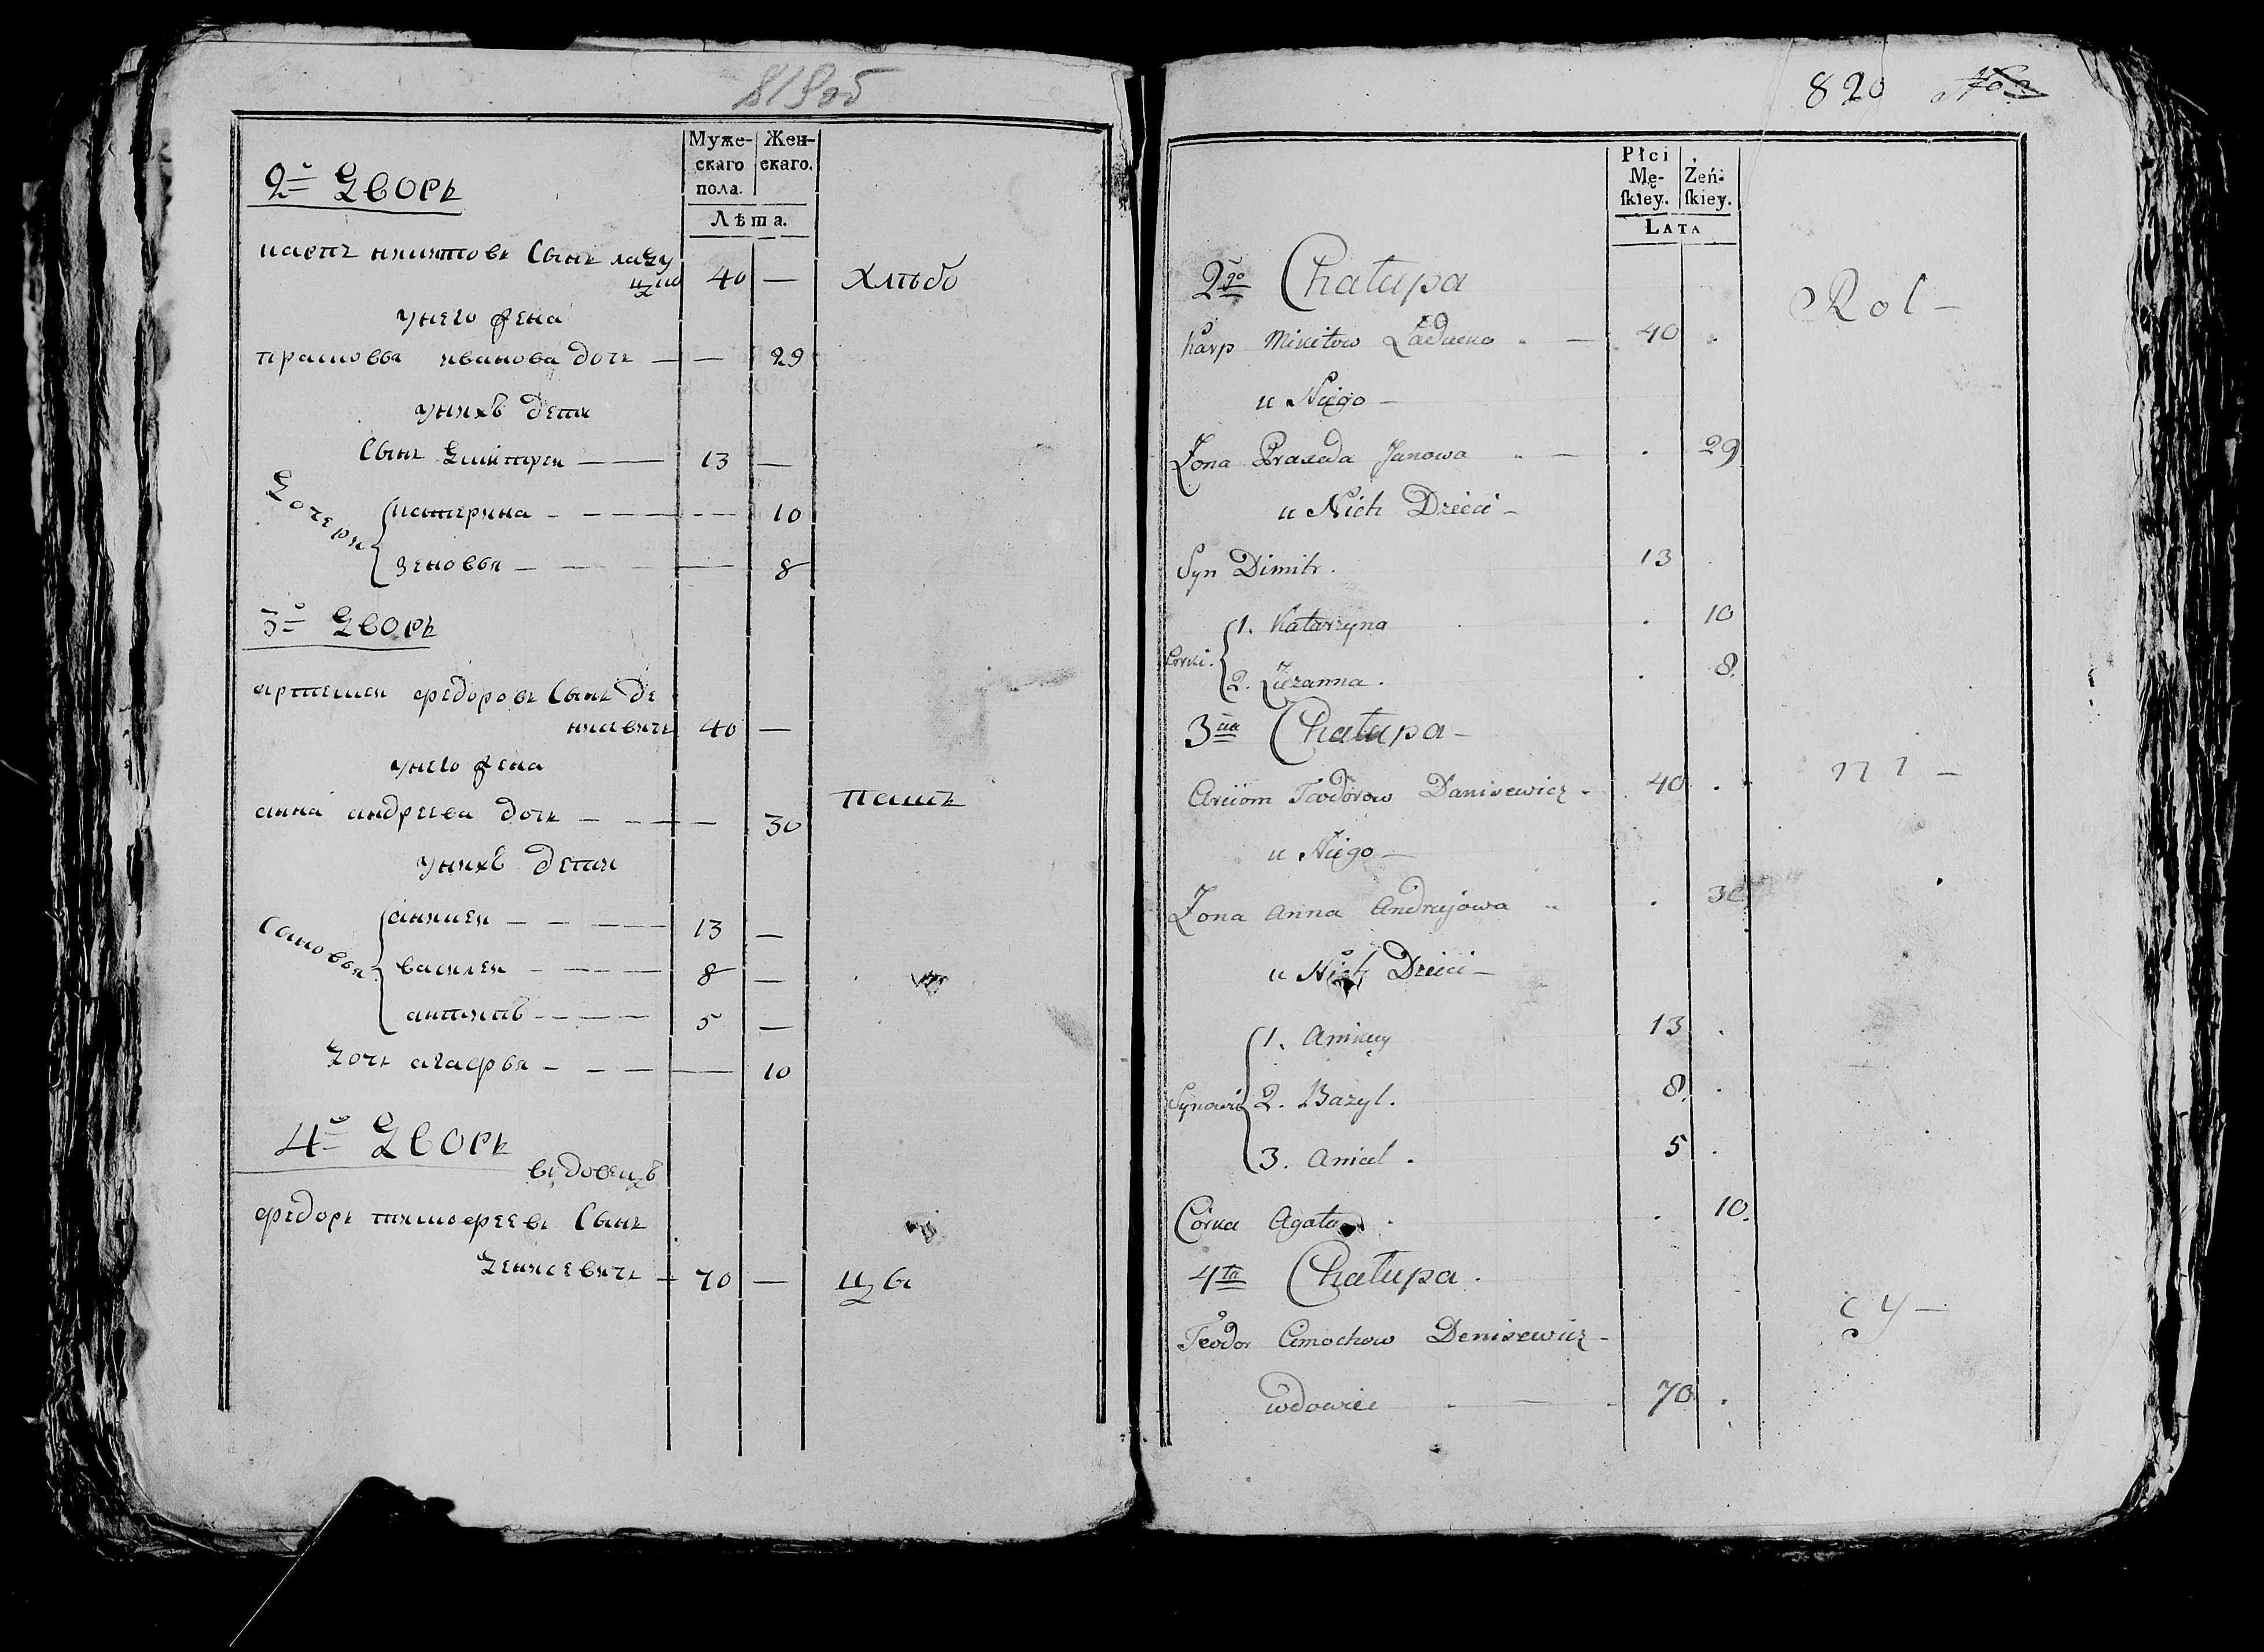 819об
Муже-
скаго
пола.
Жен-
скаго.
Лѣта.
2й Дворъ
карпъ никитовъ Сынъ ладу
цко 40 — Хлѣбо
унего жена
прасковья иванова дочь — — 29
унихъ дети
Сынъ Дмитреи — — 13 —
Дочери
катерина — — — — 10
зеновья — — — — 8
3й Дворъ
артемеи федоровъ Сынъ де
нисевичъ 40 —
унего жена
анна андреева дочь — — — — 30
пашъ
унихъ дети
Сыновья
аникеи — — — 13 —
василеи — — — 8 —
антипъ — — — 5 —
Дочь агафья — — — — 10
4й Дворъ
вдовецъ
федоръ тимофеевъ Сынъ
Денисевичъ — 70 — цы
820
Płci
Mę-
ſkiey.
Żeń-
ſkiey.
LATA
2go Chałupa
Rol —
Karp Mikitow Laducko — 40 .
u Niego —
Żona Praxeda Janowa — . 29
u Nich Dzieci —
Syn Dimitr. 13 .
Corki.
1. Katarzyna . 10
2. Zuzanna . . 8
3cia Chałupa —
Arciom Teodorow Danisewicz . 40 .
ni —
u Niego —
Żona Anna Andrejowa . 30
u Nich Dzieci —
Synowie
1. Anikiey 13 .
2. Bazyl. 8 .
3. . 5 .
Córka Agata . . 10.
4ta Chałupa .
cy —
Teodor Cimochow Denisewicz —
wdowiec — 70 .